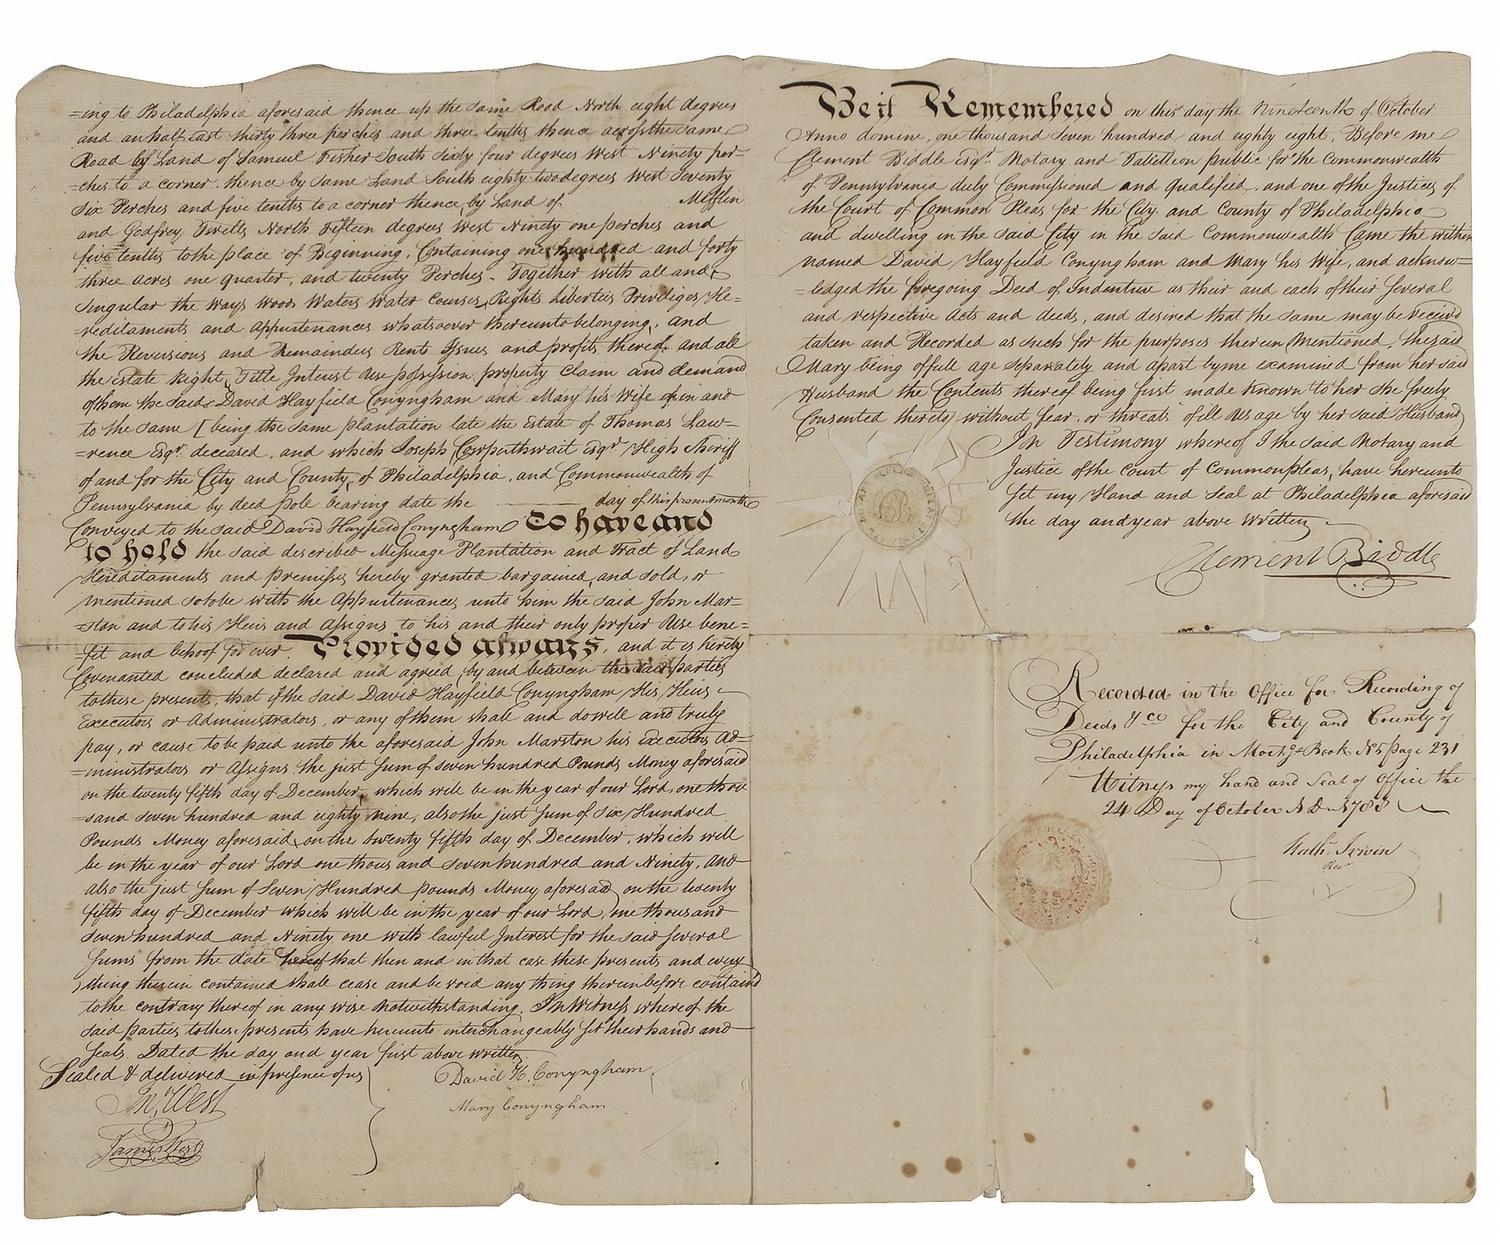 =ing to Philadelphia aforesaid thence up the same Road North eight degrees
and an half East thirty three perches and three tenths thence across the same
Road by Land of Samuel Fisher South Sixty four degrees West Ninety per=
=ches to a corner. thence by same Land South eighty two degrees West Seventy
Six Perches and five tenths to a corner thence by Land of Mifflin
and Godfrey Twells North fifteen degrees West Ninety one perches and
five tenths to the place of Beginning, Containing one hundred and forty
three acres one quarter, and twenty Perches. Together with all and
Singular the Ways Woods Waters Water Courses, Rights Liberties Priviliges, He=
=reditaments and Appurtenances whatsoever thereunto belonging, and
the Reversions and Remainders Rents Issues and profits thereof. and all
the Estate Right, Title Interest Use possession property Claim and demand
of them the said David Hayfield Conyngham and Mary his Wife of in and
to the same [ being the same plantation late the Estate of Thomas Law=
=rence Esqr. deceased, and which Joseph Cowperthwait Esqr. High Sheriff
of and for the City and County, of Philadelphia, and Commonwealth of
Pennsylvania by deed Pole bearing date the day of this present month
Conveyed to the said David Hayfield Conyngham To have and
to hold the said described Messuage Plantation and Tract of Land
Hereditaments and premises hereby granted bargained, and sold, or
mentioned so to be with the Appurtenances unto him the said John Mar=
=ston and to his Heirs and Assigns to his and their only proper Use bene=
=fit and behoof for ever. Provided always, and it is hereby
Covenanted concluded declared and agreed, by and between the said parties
to these presents, that if the said David Hayfield Conyngham His Heirs
Executors or Administrators, or any of them shall and do well and truly
pay, or cause to be paid unto the aforesaid John Marston his Executors Ad=
=ministrators or Assigns, the just Sum of Seven hundred Pounds Money aforesaid
on the twenty fifth day of December, which will be in the year of our Lord, one thou
=sand Seven hundred and eighty nine, also the just Sum of Six Hundred
Pounds Money aforesaid, on the twenty fifth day of December, which will
be in the year of our Lord one thousand and Seven hundred and Ninety, And
also the just Sum of Seven Hundred pounds Money aforesaid, on the twenty
fifth day of December which will be in the year of our Lord, one thousand
Seven hundred and Ninety one with lawful Interest for the said Several
Sums from the date hereof that then and in that case these presents and every
thing therein contained shall cease and be void any thing therein before containd
to the contrary thereof in any wise Notwithstanding. In Witness whereof the
said parties to these presents have hereunto interchangeably set their hands and
Seals. Dated the day and year first above written.
Sealed & delivered in presence of us
David H. Conyngham
Jno. West
Mary Conyngham
Be it Remembered on this day the Nineteenth of October
Anno domine, one thousand Seven hundred and eighty eight, Before me
Clement Biddle Esqr. Notary and Tabellion public for the Commonwealth
of Pennsylvania duly Commissioned and qualified, and one of the Justices of
the Court of Common Pleas for the City and County of Philadelphia
and dwelling in the said City in the said Commonwealth Came the within
named David Hayfield Conyngham and Mary his Wife, and acknow=
=ledged the foregoing Deed of Indenture as their and each of their Several
and respective Acts and deeds, and desired that the same may be received
taken and Recorded as such for the purposes therein Mentioned, the said
Mary being of full age Separately and apart by me examined from her said
Husband the Contents thereof being first made Known to her She freely
Consented thereto, without fear, or threats of ill Usage by her said Husband
In Testimony whereof I the said Notary and
Justice of the Court of Common pleas, have hereunto
Set my Hand and Seal at Philadelphia aforesaid
the day and year above Written
Clement Biddle
Recorded in the Office for Recording of
Deeds &ca for the City and County of
Philadelphia in Mortge Book No 5 page 231
Witness my hand and Seal of Office the
24 Day of October A D 1788
Nathl. Irwin
Recr